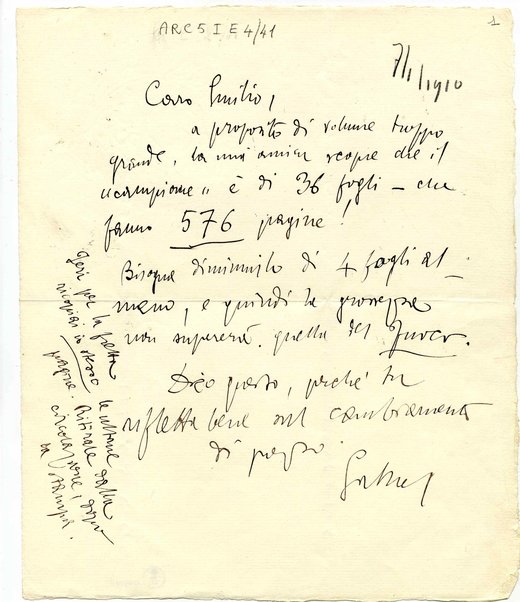 ARC 5 I E 4/41
1
7/1/1910
Caro Emilio,
a proposito di volume troppo
grande, la mia amica scopre che il
"campione" è di 36 fogli – che
fanno 576 pagine!
Bisogna diminuirlo di 4 fogli al-
meno, e quindi la grossezza
non supererà quella del Fuoco.
Dico questo, perché tu
rifletta bene sul cambiamento
di prezzo.
Gabriel
Ieri per la fretta
ricopiai io stesso le ultime
pagine. Ritirale dalla
circolazione, dopo
la stampa.